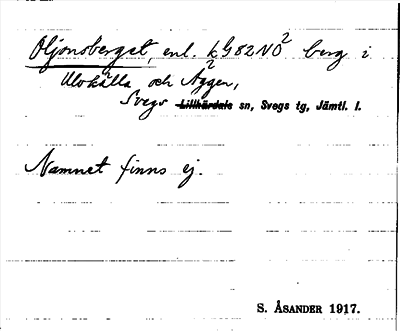 Oljonsberget, enl. kG82NO² berg i
Ulvkälla och Äggen,
Svegs Lillhärdals sn, Svegs tg, Jämtl. l.
Namnet finns ej.
S. ÅSANDER 1917.